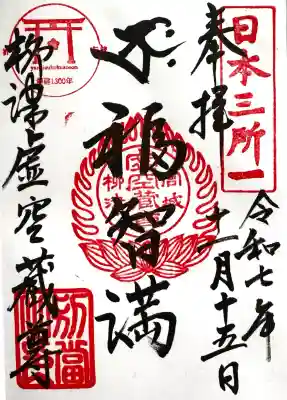 日本三所一
奉拝
令和七年
十一月十五日
福智満
柳津虚空蔵尊
虚空蔵
柳津
開創1300年
別當